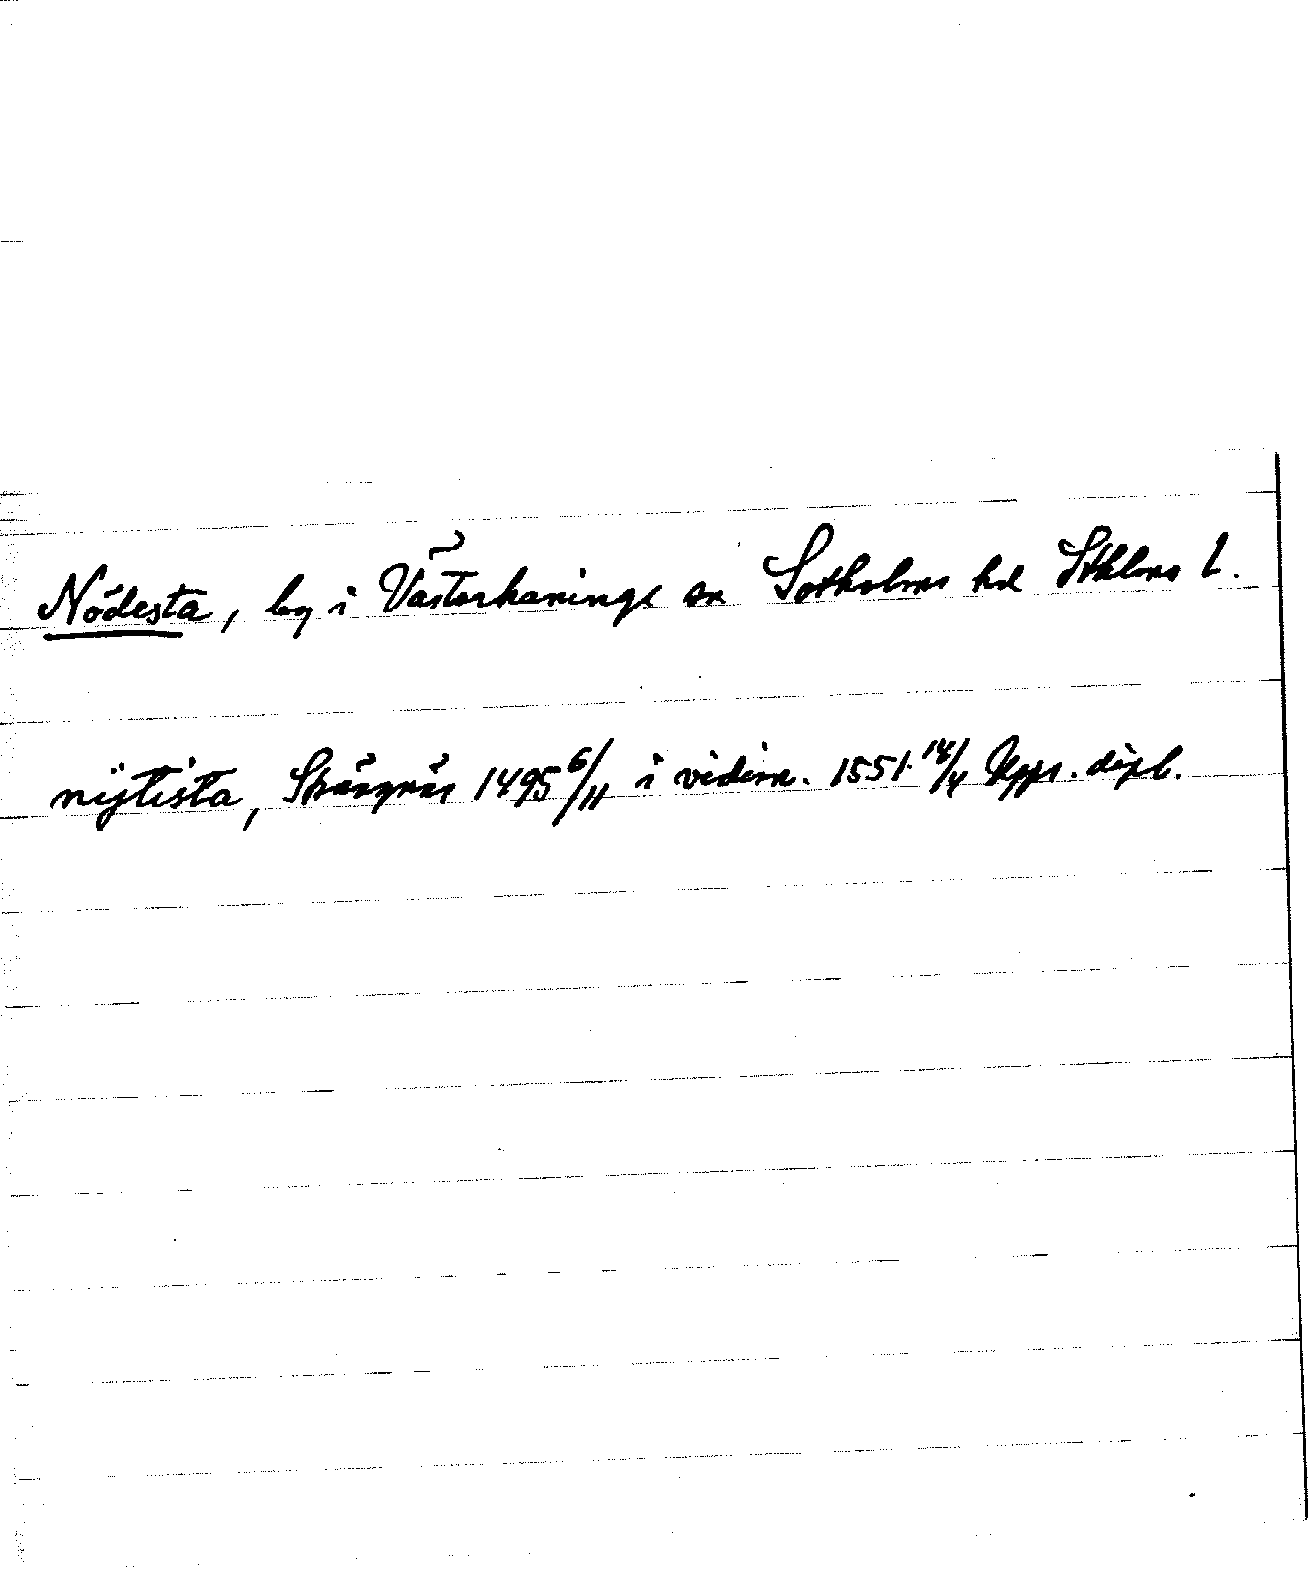 Nödesta, by i Västerhaninge sn Sotholms hd Sthlms l.
nijtista, Strängnäs 1495 6/11 i vidim. 1551 14/4 Upps. dipl.